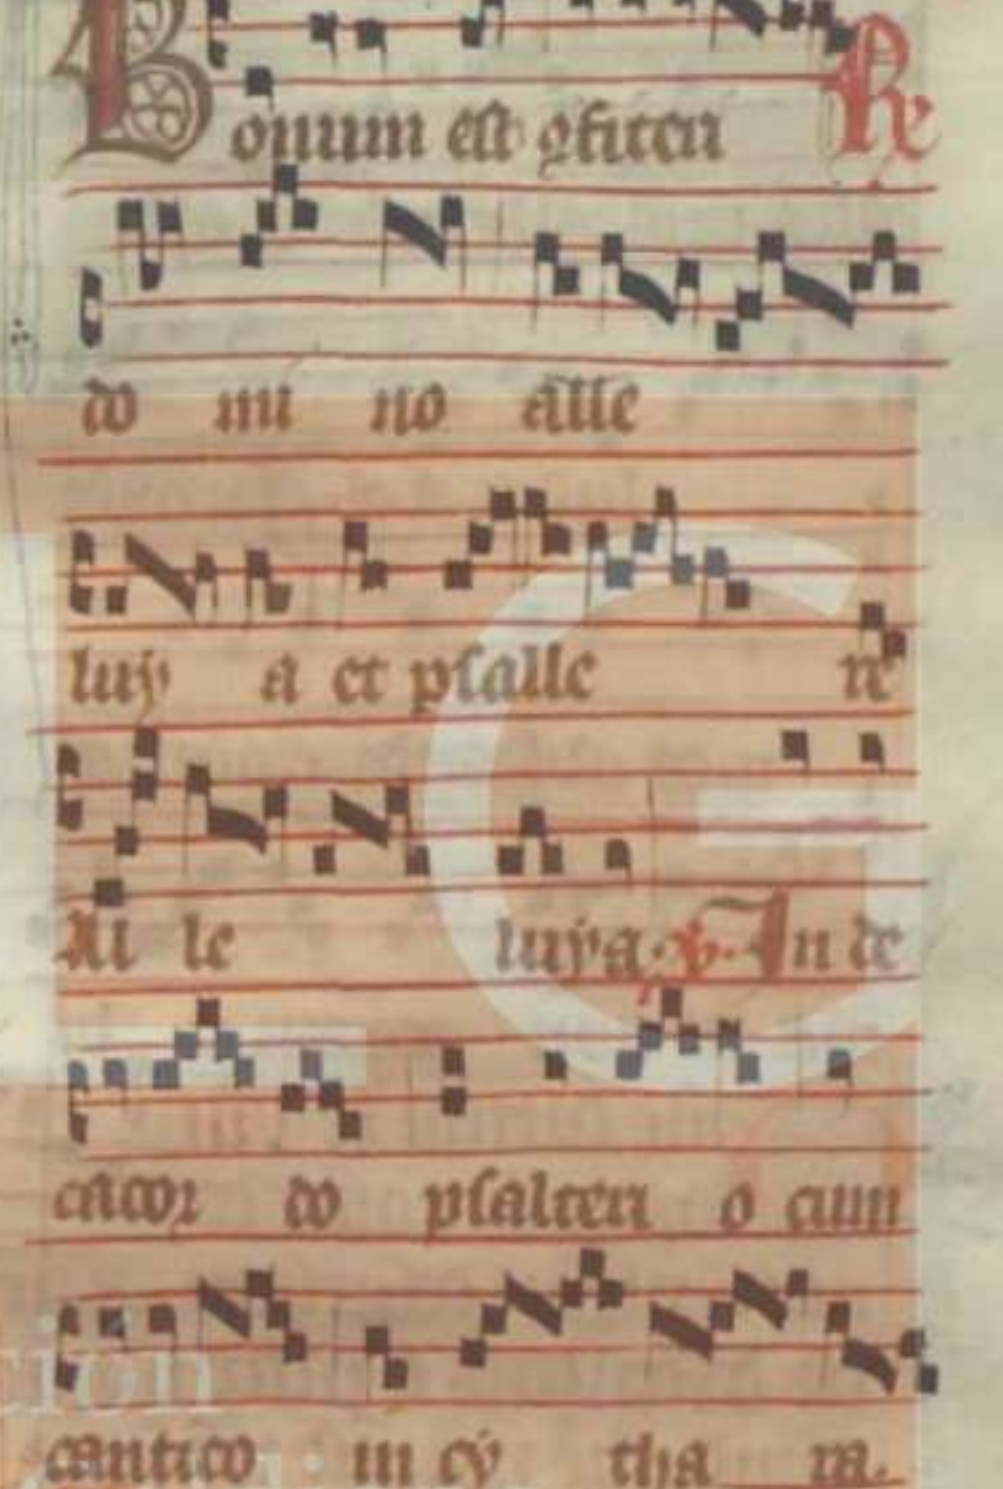 Bonum est ꝯfiteri R
do mi no alle
luÿ a et psalle re
Al le luÿa. V. In de
cacor do psalteri o cum
cantico in cÿ tha ra.